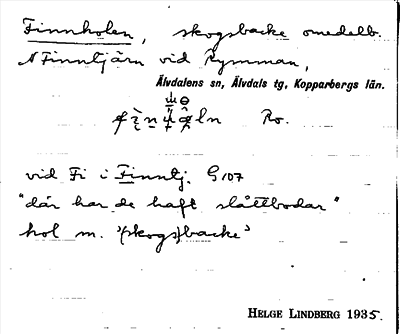 Finnholen, skogsbacke omedelb.
N Finntjärn vid Rymman,
Älvdalens sn, Älvdals tg, Kopparbergs län.
Ro.
vid Fi i Finntj. G 107
"där har de haft slåttbodar"
hol m. '(skogs)backe'
HELGE LINDBERG 1935.